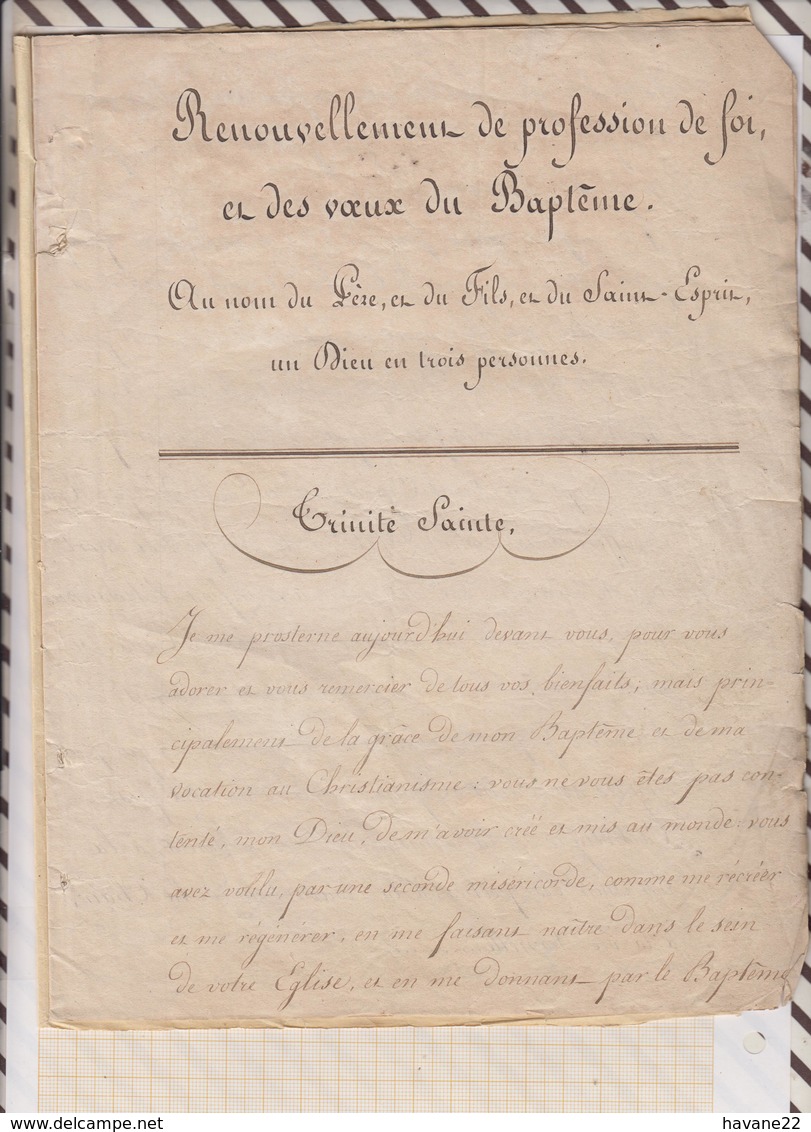 Renouvellement de profession de foi,
et des vœux du Baptême.
Au nom du Père, et du Fils, et du Saint-Esprit,
un Dieu en trois personnes.
Trinité Sainte,
Je me prosterne aujourd'hui devant vous, pour vous
adorer et vous remercier de tous vos bienfaits; mais prin-
cipalement de la grâce de mon Baptême et de ma
vocation au Christianisme : vous ne vous êtes pas con-
tenté, mon Dieu, de m'avoir créé et mis au monde : vous
avez voulu, par une seconde miséricorde, comme me récréer
et me régénérer, en me faisant naître dans le sein
de votre Église, et en me donnant par le Baptême
havane22